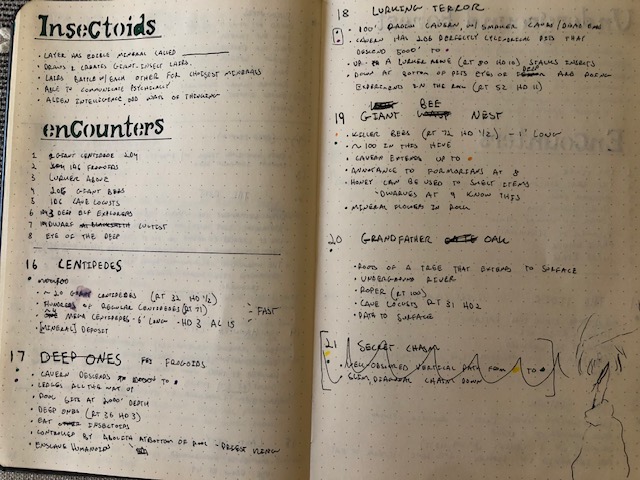 Insectoids
• LAYER HAS EDIBLE MINERAL CALLED
• DRAWS & CREATES GIANT INSECT LAIRS.
• LAIRS BATTLE W/ EACH OTHER FOR CHOICEST MINERALS
• ABLE TO COMMUNICATE PSYCHICALLY
• ALIEN INTELLIGENCE ODD WAYS OF THINKING
enCounters
1 GIANT CENTIPEDE 2D4
2 1D6 FROGOIDS
3 LURKER ABOVE
4 2D6 GIANT BEES
5 1D6 CAVE LOCUSTS
6 DEEP ELF EXPLORERS
7 DWARF CULTIST
8 EYE OF THE DEEP
16 CENTIPEDES
• ~20 GIANT CENTIPEDES (RT 32 HD 1/2)
• HUNDREDS OF REGULAR CENTIPEDES (RT 71)
• MEGA CENTIPEDES - 6' LONG - HD 3 AC 15
FAST
• [MINERAL] DEPOSIT
17 DEEP ONES FROGOIDS
• CAVERN DESCENDS TO
• LEDGES ALL THE WAY UP
• POOL SITS AT 2000' DEPTH
• DEEP ONES (RT 36 HD 3)
• EAT INSECTOIDS
• CONTROLLED BY ABOLETH AT BOTTOM OF POOL
• ENSLAVE HUMANOIDS
18 LURKING TERROR
• 100' CAVERN, W/ SMALLER
• CAVERN HAS 2D6 PERFECTLY CYLINDRICAL PITS THAT
DESCEND 5000' TO
• UP TO A LURKER ABOVE (RT 80 HD 10) STALKS INSECTS
• DOWN AT BOTTOM OF PITS EYES OF DEEP ARE DOING
EXPERIMENTS IN THE (RT 52 HD 11)
19 GIANT BEE NEST
• KILLER BEES (RT 72 HD 1/2) - 1' LONG
• ~100 IN THIS HIVE
• CAVERN EXTENDS UP TO
• ANNOYANCE TO FORMORIANS AT 8
• HONEY CAN BE USED TO SMELT ITEMS
- DWARVES AT 9 KNOW THIS
• MINERAL FLOWERS IN ROCK
20 GRANDFATHER OAK
• ROOTS OF A TREE THAT EXTENDS TO SURFACE
• UNDERGROUND RIVER
• ROPER (RT 100)
• CAVE LOCUSTS RT 31 HD 2
• PATH TO SURFACE
21 SECRET CHASM
• WELL OBSCURED VERTICAL PATH FROM TO
• SLIM, DIAGONAL CHASM DOWN